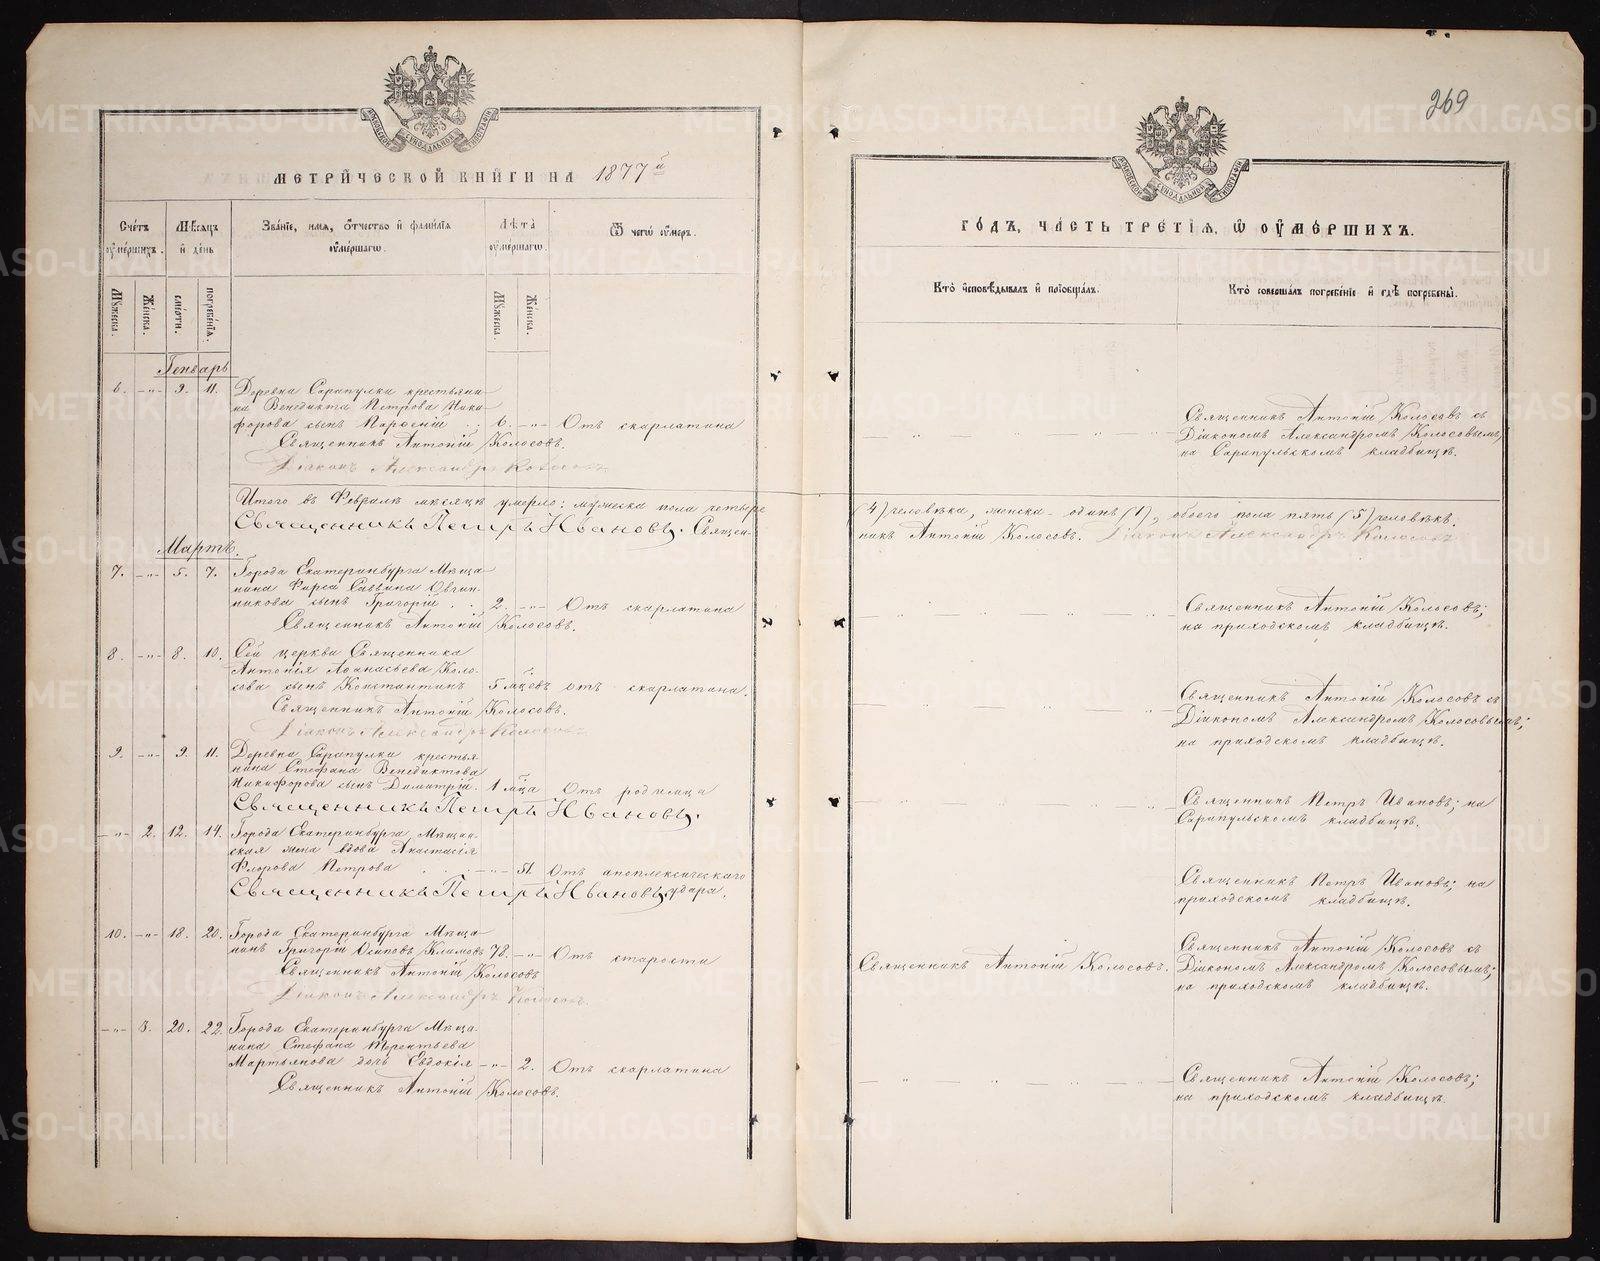 269
МЕТРИЧЕСКОЙ КНИГИ НА 1877й
ГОДЪ, ЧАСТЬ ТРЕТІЯ, Ѿ ОУМЕРШИХЪ.
Счетъ оумершихъ.
Мѣсяцъ и день
Званіе, имя, отчество и фамилія оумершагѡ.
Лѣта оумершагѡ.
Ѿ чегѡ оумеръ.
Кто исповѣдывалъ и пріобщалъ.
Кто совершалъ погребеніе и гдѣ погребены.
Мужеска.
Женска.
смерти.
погребенія.
Мужеска.
Женска.
Генварь
6. -„- 9. 11. Деревни Сарапулки крестьяни-
на Венедикта Петрова Ники-
форова сынъ Парѳеній 6. -„- Отъ скарлатина
Священникъ Антоній Колосовъ.
Діаконъ Александръ Колосовъ
Священникъ Антоній Колосовъ съ
Діакономъ Александромъ Колосовымъ,
на Сарапульскомъ кладбищѣ.
Итого въ Февралѣ мѣсяцѣ умерло: мужеска пола четыре
(4) человѣка, женска одинъ (1), обоего пола пять (5) человѣкъ.
Священникъ Петръ Ивановъ. Священ-
никъ Антоній Колосовъ. Діаконъ Александръ Колосовъ
Мартъ.
7. -„- 5. 7. Города Екатеринбурга Мѣща-
нина Фирса Саввина Овчин-
никова сынъ Григорій 2. -„- Отъ скарлатина
Священникъ Антоній Колосовъ.
Священникъ Антоній Колосовъ;
на приходскомъ кладбищѣ.
8. -„- 8. 10. Сей церкви Священника
Антонія Аѳанасьева Коло-
сова сынъ Константинъ 5 мцевъ отъ скарлатина.
Священникъ Антоній Колосовъ.
Діаконъ Александръ Колосовъ
Священникъ Антоній Колосовъ съ
Діакономъ Александромъ Колосовымъ;
на приходскомъ кладбищѣ.
9. -„- 9. 11. Деревни Сарапулки крестья-
нина Стефана Венедиктова
Никифорова сынъ Димитрій. 1 мца Отъ родимца
Священникъ Петръ Ивановъ.
Священникъ Петръ Ивановъ; на
Сарапульскомъ кладбищѣ.
-„- 2. 12. 14. Города Екатеринбурга Мѣщан-
ская жена вдова Анастасія
Флорова Петрова -„- 51. Отъ апоплексическаго
Священникъ Петръ Ивановъ. удара.
Священникъ Петръ Ивановъ; на
приходскомъ кладбищѣ.
10. -„- 18. 20. Города Екатеринбурга Мѣща-
нинъ Григорій Осиповъ Климовъ 78. -„- Отъ старости
Священникъ Антоній Колосовъ
Діаконъ Александръ Колосовъ.
Священникъ Антоній Колосовъ.
Священникъ Антоній Колосовъ съ
Діакономъ Александромъ Колосовымъ;
на приходскомъ кладбищѣ.
-„- 3. 20. 22. Города Екатеринбурга Мѣща-
нина Стефана Терентьева
Мартьянова дочь Евдокія -„- 2. Отъ скарлатина
Священникъ Антоній Колосовъ.
Священникъ Антоній Колосовъ;
на приходскомъ кладбищѣ.
METRIKI.GASO-URAL.RU